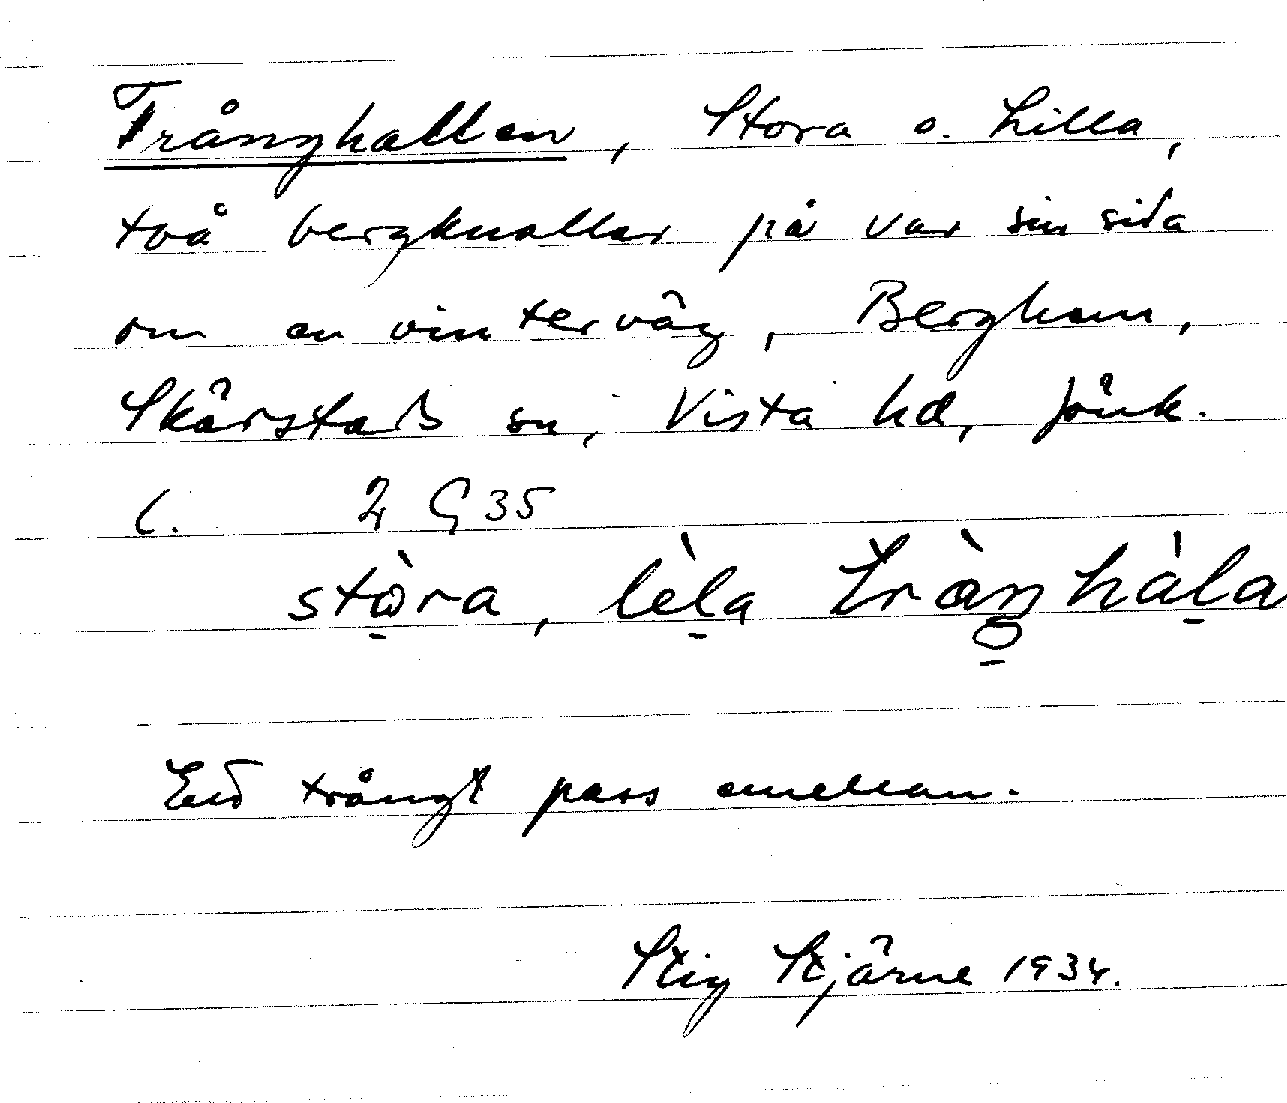 Trånghallen, Stora o. Lilla,
två bergknallar på var sin sida
om en vinterväg, Berghem,
Skärstads sn, Vista hd, Jönk.
l. 2 G 35
stòra, lèla tràŋhàla
Ett trångt pass emellan.
Stig Stjärne 1934.